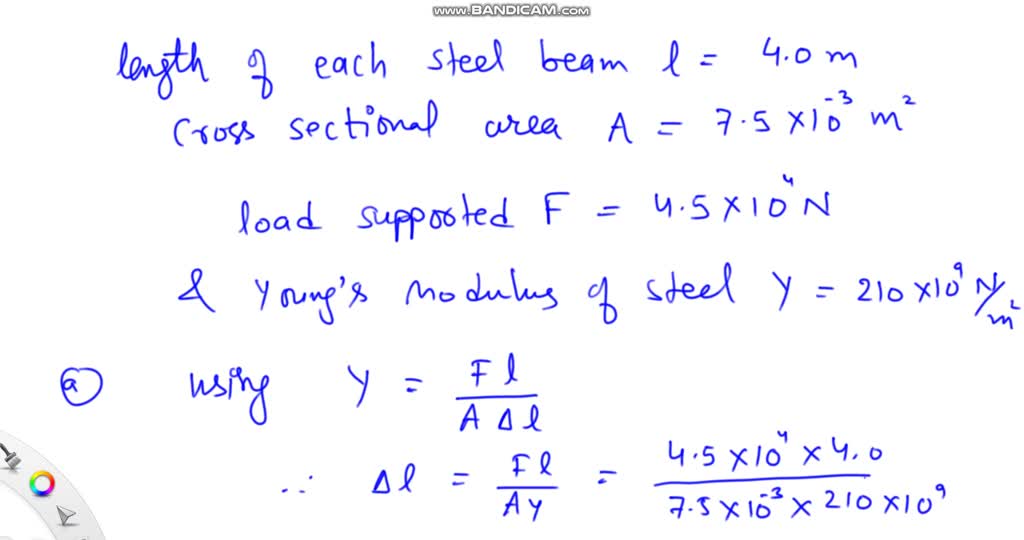 www.BANDICAM.com
length of each steel beam l = 4.0 m
Cross sectional area A = 7.5 × 10⁻³ m²
load supported F = 4.5 × 10⁴ N
& Young's modulus of steel Y = 210 × 10⁹ N/m²
(a) using Y = Fl / A Δl
∴ Δl = Fl / AY = 4.5 × 10⁴ × 4.0 / 7.5 × 10⁻³ × 210 × 10⁹